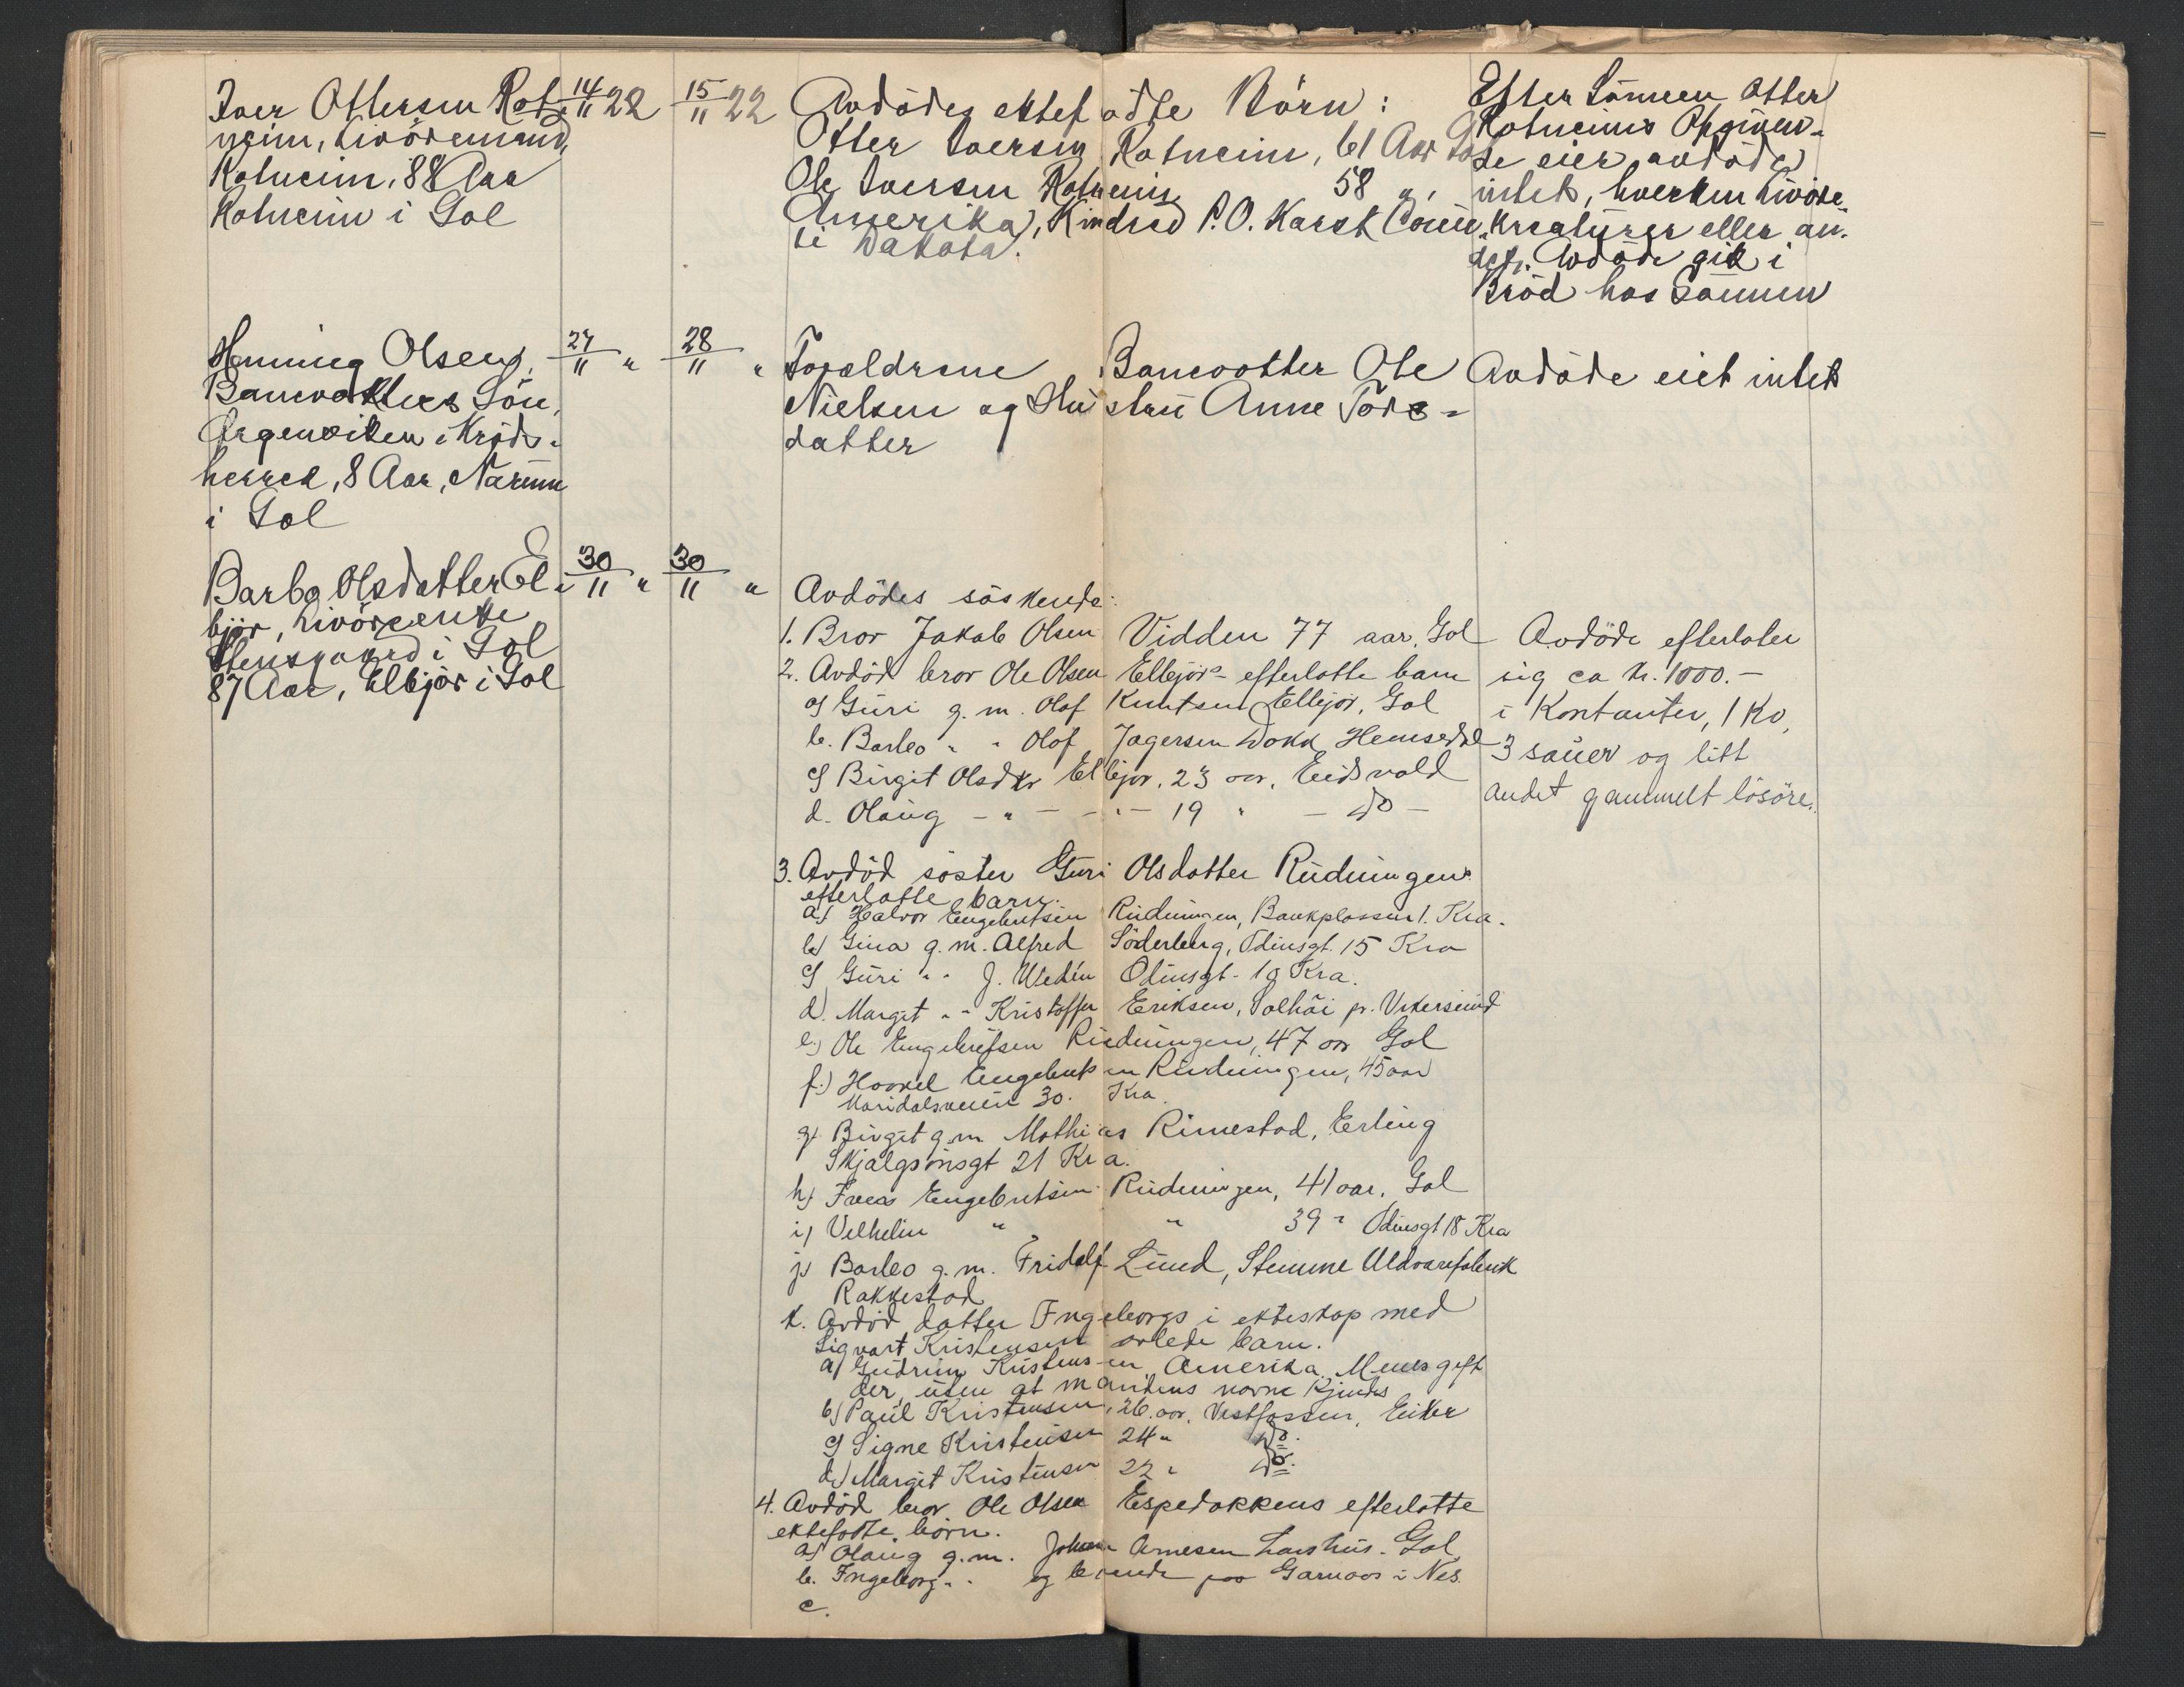 Iver Ottersen Rot- 14/11 22 15/11 22
neim, Livöremand,
Rotneim, 88 Aar
Rotneim i Gol
Avdödes ektefödte Börn:
Otter Iversen Rotneim, 61 Aar Gol
Ole Iversen Rotneim 58 "
Amerika, Kindred P.O. Karst Coun-
ti Dakota.
Efter Sönnen Otter
Rotneims Opgiven-
de eier avdöde
intet, hverken Livöre,
Kreaturer eller an-
det. Avdöde gik i
Bröd hos Sönnen
Henning Olsen, 27/11 " 28/11 "
Banevokters Sön,
Ørgenviken i Kröds-
herred, 8 Aar, Narum
i Gol
Foreldrene Banevokter Ole
Nielsen og Hustru Anne Tors-
datter
Avdöde eiet intet
Barbo Olsdatter El- 30/11 " 30/11 "
björ, Livörente
Stensgaard i Gol
87 Aar, Elbjör i Gol
Avdödes söskende:
1. Bror Jakob Olsen Vidden 77 aar, Gol
2. Avdöd bror Ole Olsen Elbjörs efterlatte barn
a) Guri g.m. Olaf Knutsen Elbjör, Gol
b. Barbo " " Olof Jagersen Dokk Hemsedal
c) Birgit Olsdtr Elbjör, 23 aar, Eidsvold
d. Olaug - " - - " - 19 " - do -
3. Avdöd söster Guri Olsdatter Rudningens
efterlatte barn.
a) Halvor Engebretsen Rudningen, Bankplassen 1. Kra.
b) Gina g.m. Alfred Söderberg, Odinsgt. 15 Kra
c) Guri " " J. Wedén Odinsgt. 19 Kra.
d). Margit " " Kristoffer Eriksen, Solhöi pr. Vikersund
e.) Ole Engebretsen Rudningen, 47 aar Gol
f.) Haavel Engebretsen Rudningen, 45 aar
Maridalsveien 30. Kra.
g) Birgit g.m Mathias Rimestad, Erling
Skjalgsönsgt 21 Kra.
h) Engebretsen Rudningen, 41 aar, Gol
i) Vilhelm " " 39 " Odinsgt 18 Kra
j) Barbo g.m. Fridolf Lund, Stemme Uldvarefabrik
Rakkestad
k. Avdöd datter Ingeborgs i ekteskap med
Sigvart Kristensen avlede barn.
a) Gudrun Kristensen, Amerika. Menes gift
der, uten at mandens navne kjendes
b) Paul Kristensen, 26 aar, Vestfossen, Eiker
c) Signe Kristensen 24 " do.
d.) Margit Kristensen 22 " do.
4. Avdöd bror Ole Olsen Espedokkens efterlatte
ektefödte börn.
a) Olaug g.m. Johan Arnesen Lauhus. Gol
b. Ingeborg " " og boende paa Garnaas i Nes.
c.
Avdöde efterlater
sig ca kr. 1000.-
i Kontanter, 1 ko,
3 sauer og litt
andet gammelt lösöre.